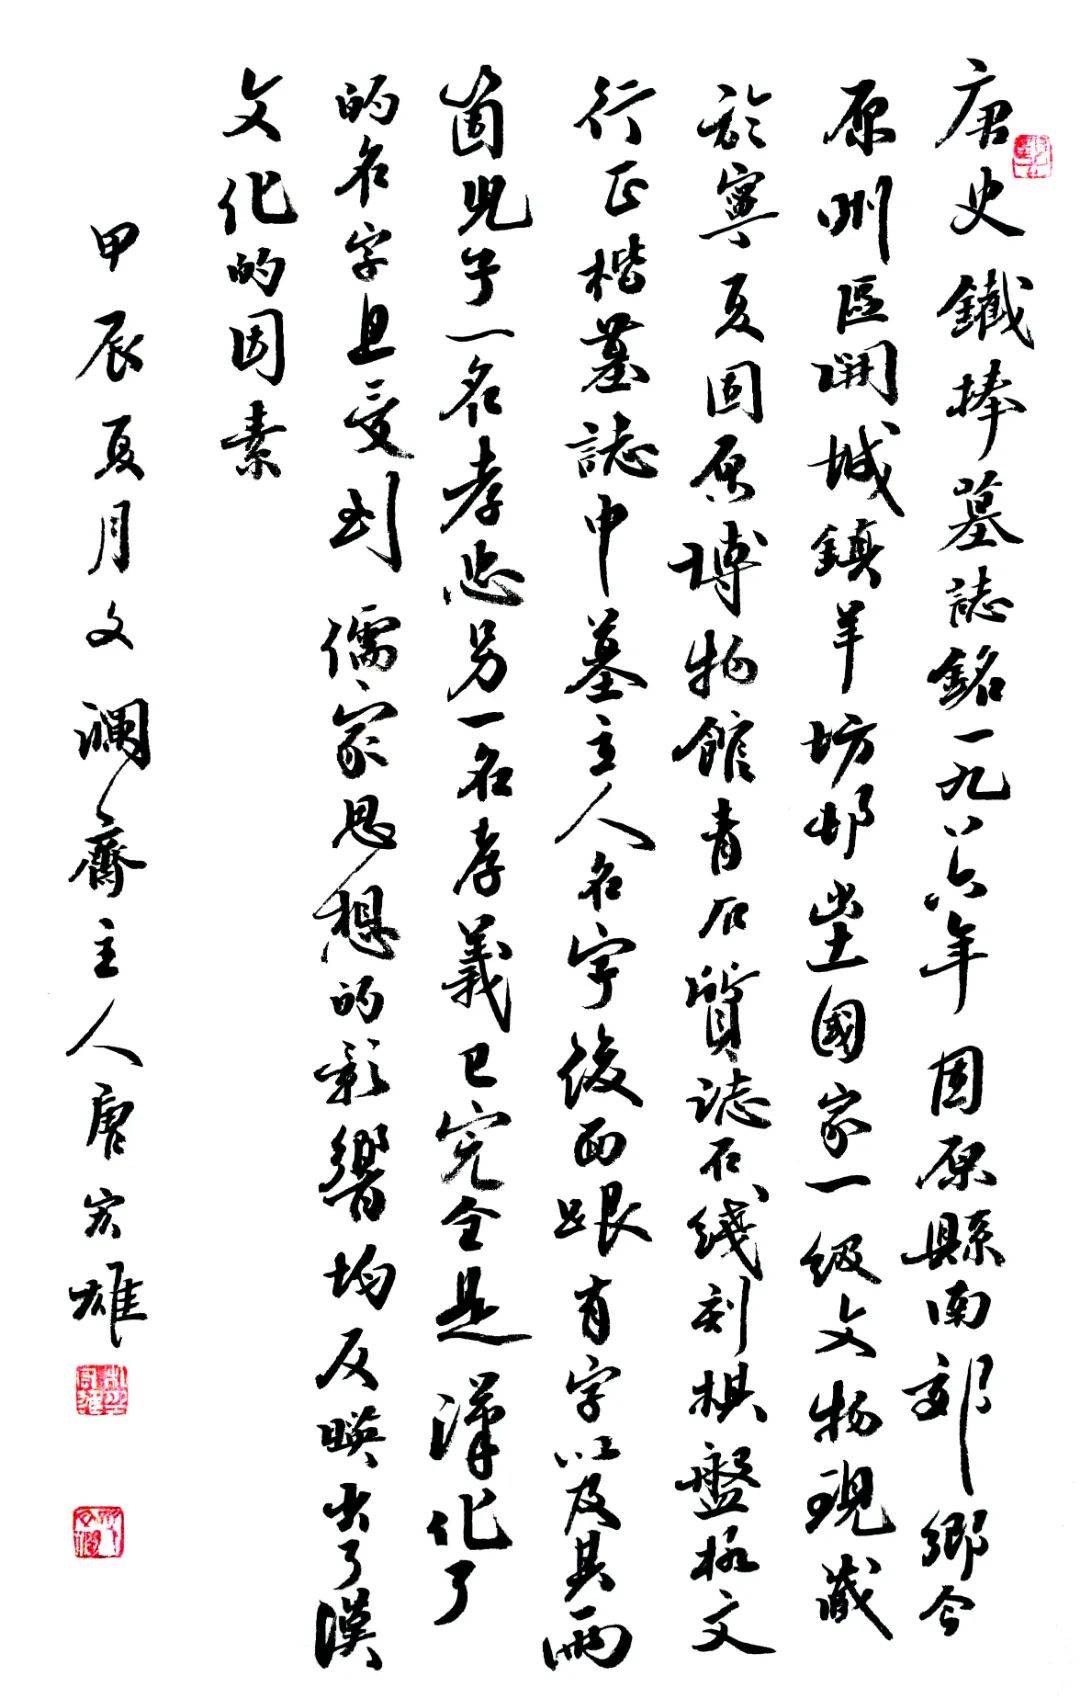 唐史鐵棒墓誌銘一九八六年固原縣南郊鄉今
原州區開城鎮羊坊邨出土國家一級文物現藏
於寧夏固原博物館青石質誌石綫刻棋盤格文
行正楷墓誌中墓主人名字後面跟有字以及其兩
箇兒子一名孝忠另一名孝義已完全是漢化了
的名字且受到儒家思想的影響均反映出了漢
文化的因素
甲辰夏月文瀾齋主人唐宏雄